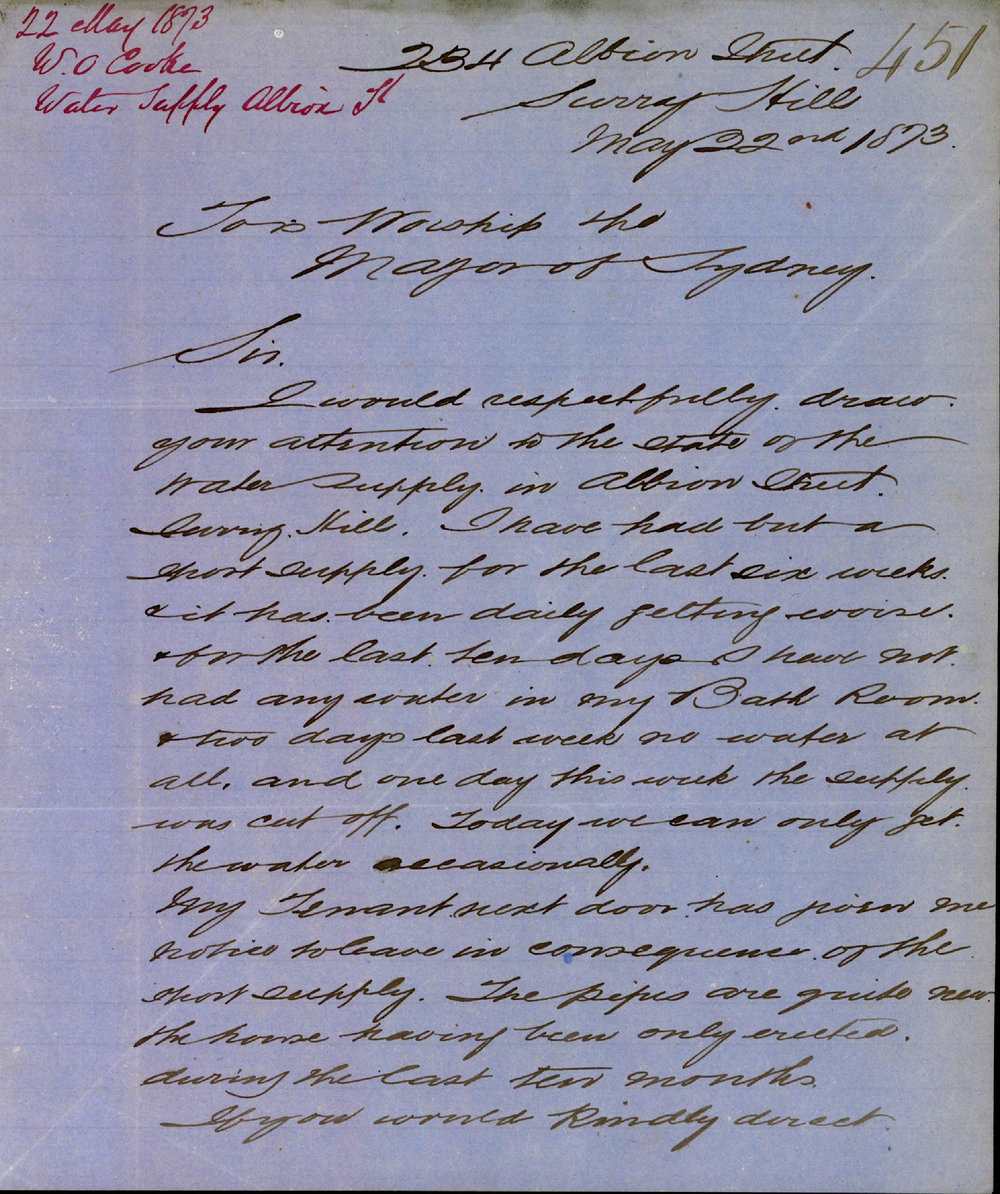 22 May 1873
W. O Cooke
Water Supply Albion St
451
234 Albion Street.
Surry Hills
May 22nd 1873.
To his Worship the
Mayor of Sydney.
Sir.
I would respectfully draw
your attention to the state of the
Water Supply in Albion Street.
Surry Hill. I have had but a
short supply for the last six weeks.
& it has been daily getting worse.
& for the last ten days I have not
had any water in my Bath Room.
& two days last week no water at
all. and one day this week the supply
was cut off. Today we can only get
the water occasionally.
My Tenant next door has given me
notice to leave in consequence of the
short supply. The pipes are quite new.
the house having been only erected.
during the last ten months.
If you would kindly direct